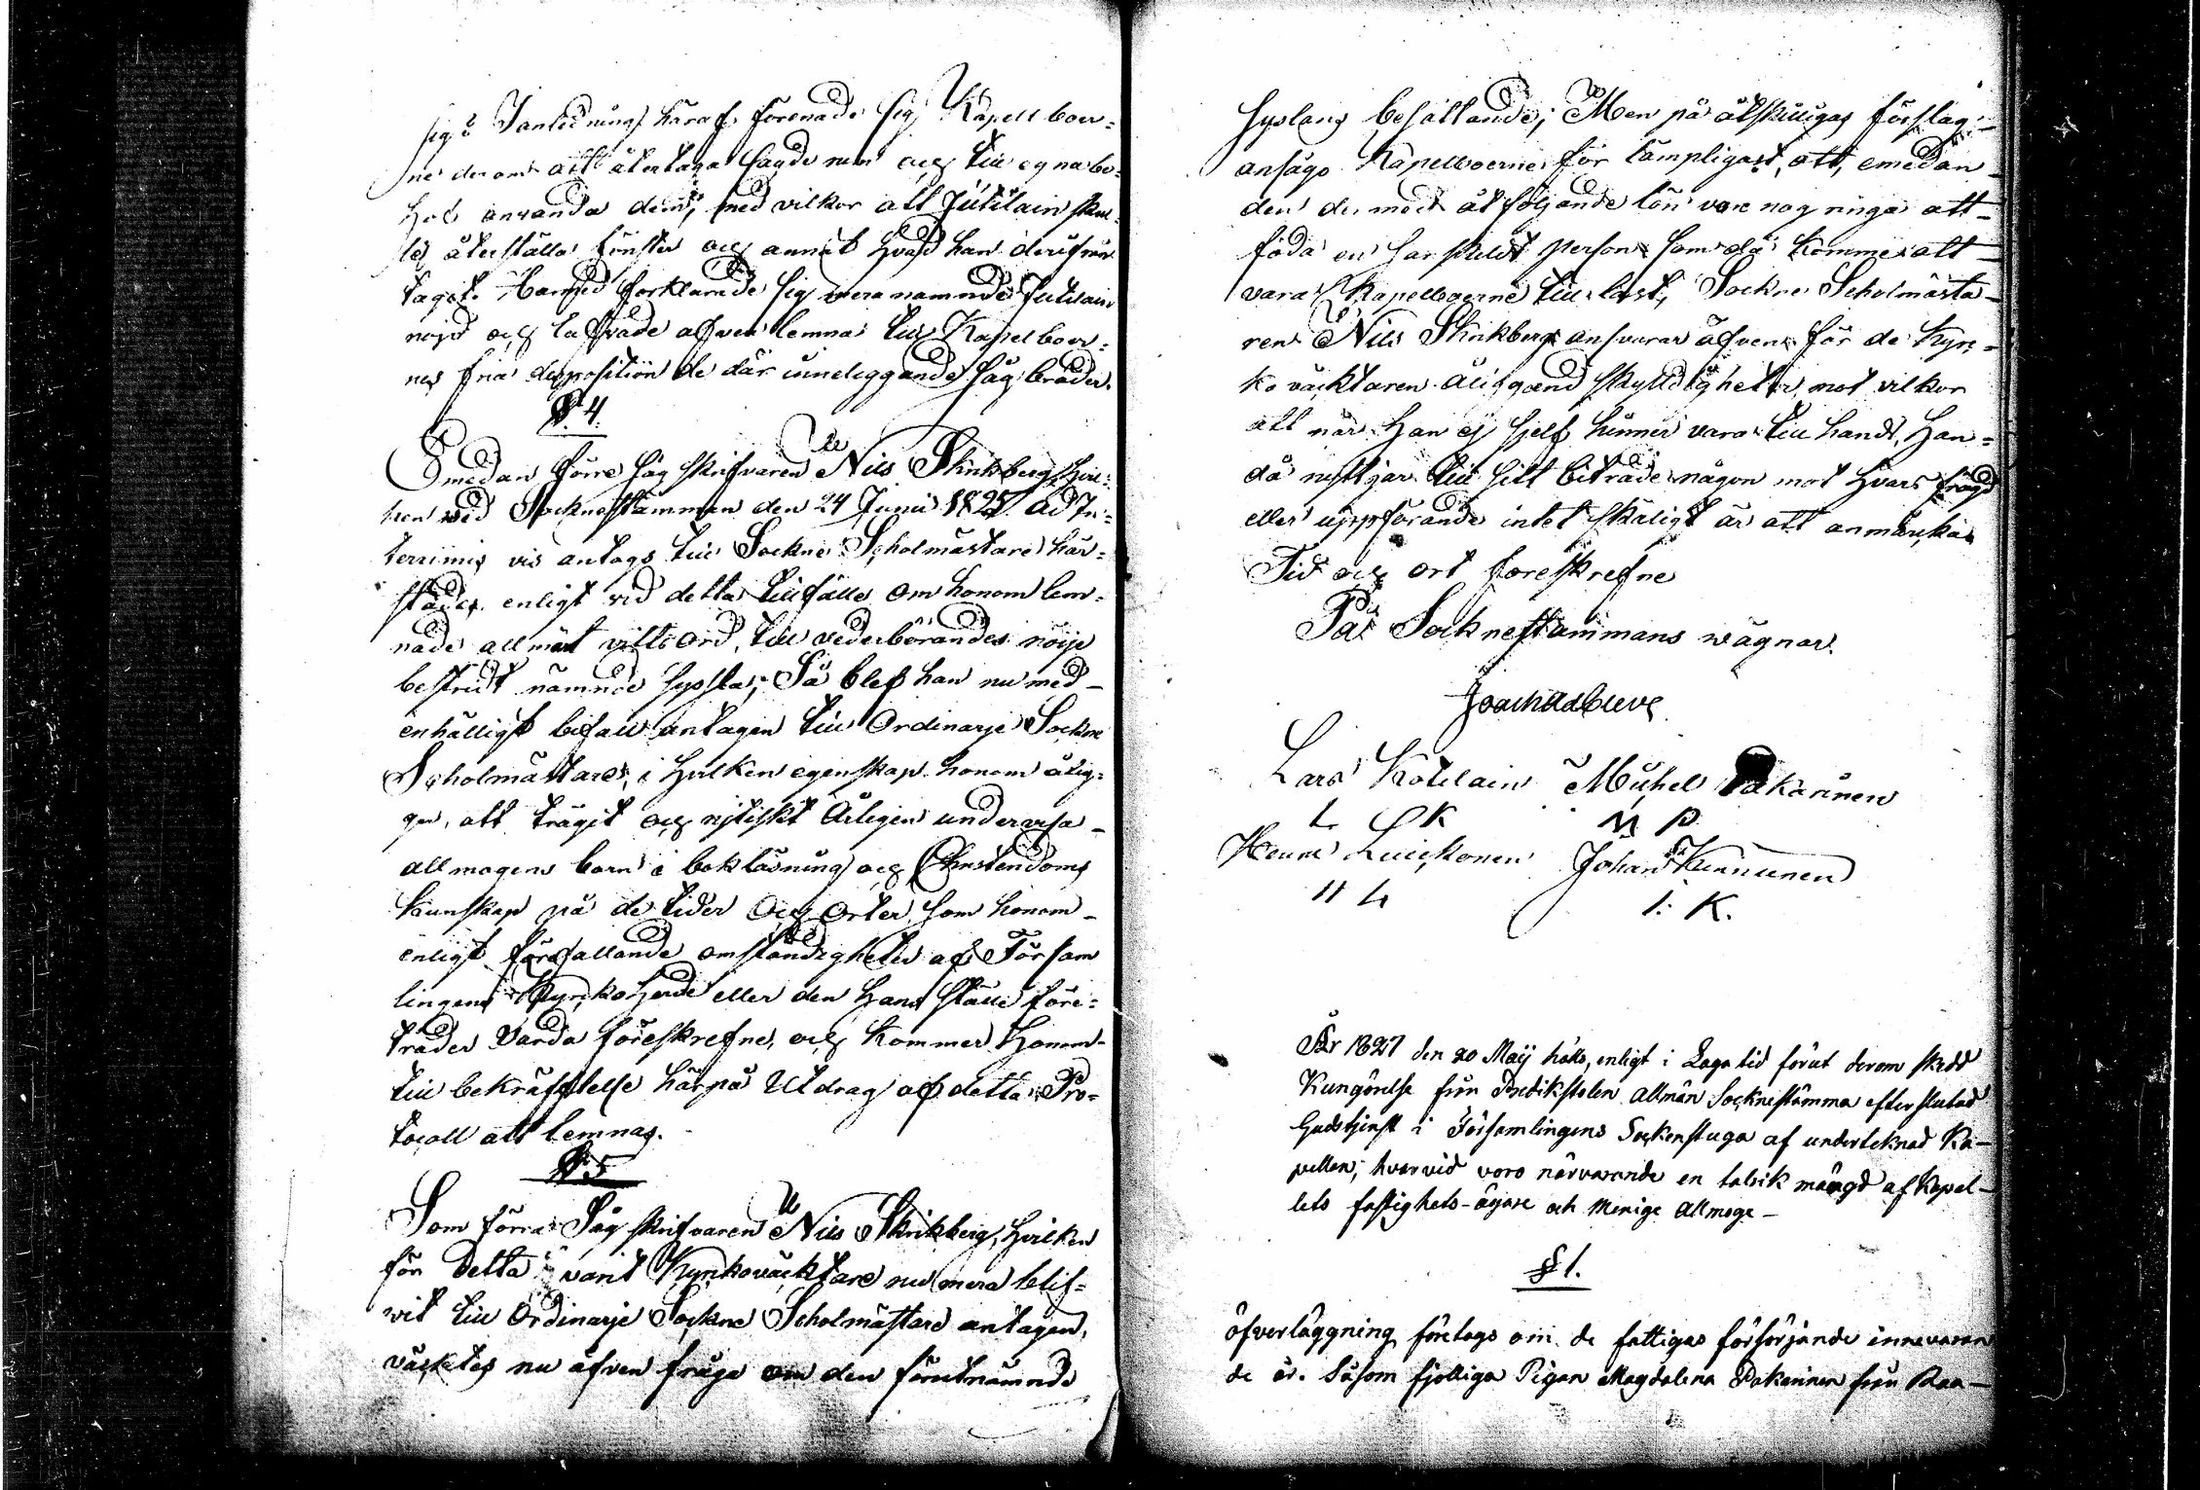 sig i Janledning häraf förenade sig Kapell boer=
ne derom att återtaga sagde och till egna be=
hof använda dem, med vilkor att Jutilain skul=
le återställa fönster och annat hvad han derifrån
tagit. Härmed förklarade sig mera namnde Jutilain
nöjd och lofvade afven lemna till Kapelboer=
nes fria disposition de där inneliggande såg bräder.
§ 4.
Emedan förre Såg skrifvaren Nils Skrikberg, hvil=
ken vid Sockneståmman den 24 Junii 1825 ad In=
terrimis vis antogs till Sockne Scholmästare här=
städes enligt vid detta tillfälle om honom lem=
nade allmänt vittsord, till vederbörandes nöije
bestridt nämnde syssla; Så blef han nu med
enhälligt bifall antagen till Ordinarje Sockne
Scholmästare, i hvilken egenskap honom ålig=
ger, att trägit och nitiskt årligen undervisa
allmogens barn i bokläsning och Christendoms
kunskap på de tider och orter, som honom
enligt förefallande omständigheter af Försam
lingens Kyrkoherde eller den hans ställe före=
träder varda föreskrefne, och kommer honom
till bekräftelse härpå Utdrag af detta Pro=
tocoll att lemnas.
§ 5
Som förra Såg skrifvaren Nils Skrikberg, hvilken
för detta varit Kyrkoväcktare nu mera blif=
vit till Ordinarje Sockne Scholmästare antagen,
väcktes nu äfven fråga om den förutnämnde
Syslans besättande; Men på åtskilligas förslag
ansågo Kapellboerne för lämpligast, att, emedan
den der med åtföljande lön vore nog ringa att
föda en särskildt person som då kommer att
vara Kapellboerne till last, Sockne Scholmästa
ren Nils Skrikberg ansvarar äfven för de Kyr=
ko väcktaren åliggend skyldigheter, mot vilkor
att när Han ej sjelf hinner vara till hands, Han
då nyttjar till sitt biträde någon mot hvars frägd
eller uppförande intet skäligt är att anmärka.
Tid och ort föreskrefne
På Sockneståmmans wägnar.
Joach Ad Cleve
Lars Kotilain Michel Pakarinen
L K M P
Henric Luickonen Johan Kinnunen
H L I: K.
År 1827 den 20 Maij hölts, enligt i Laga tid förut derom skedd
Kungörelse från Predikstolen Allmän Socknestämma efter slutad
Gudstjenst i Församlingens Sockenstuga af underteknad Ka-
pellan; hvarvid voro närvarande en talrik mängd af Kapel-
lets fastighets-ägare och Menige Allmoge -
§ 1.
Öfverläggning företogs om de fattigas försörjande innevaran
de år. Såsom fjolliga Pigan Magdalena Pakarinen från Raa-